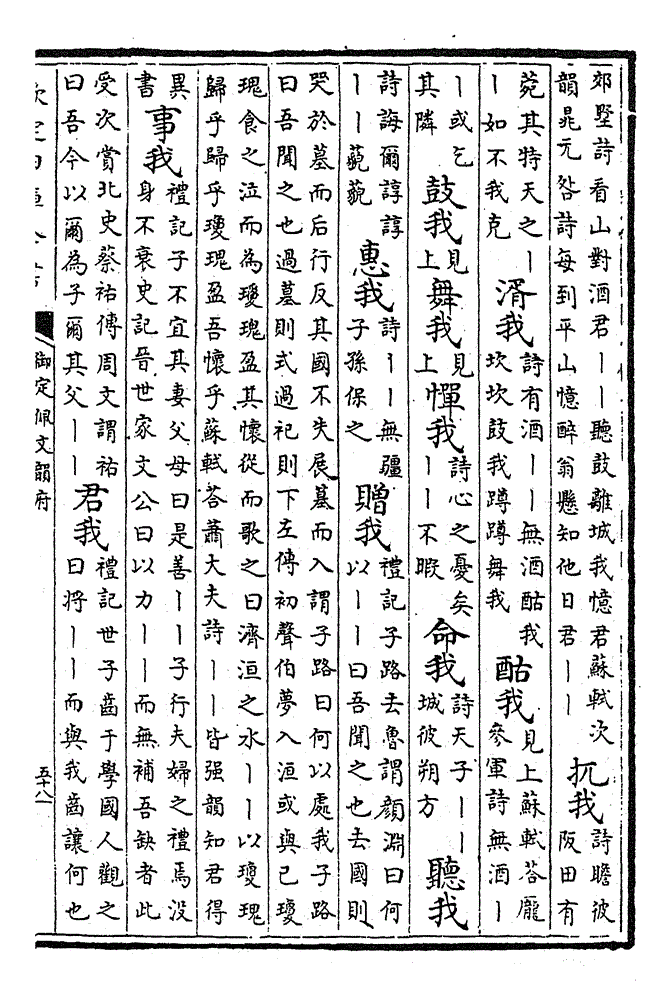 郊墅詩看山對酒君丨丨聽鼓離城我憶君蘇軾次
韻晁元咎詩每到平山憶醉翁懸知他日君丨丨
扤我
詩瞻彼
阪田有
菀其特天之丨
丨如不我克
湑我
詩有酒丨丨無酒酤我
坎坎鼓我蹲蹲舞我
酤我
見上蘇軾荅龐
參軍詩無酒丨
丨或乞
其隣
鼓我
見
上
舞我
見
上
憚我
詩心之憂矣
丨丨不暇
命我
詩天子丨丨
城彼朔方
聽我
詩誨爾諄諄
丨丨藐藐
惠我
詩丨丨無疆
子孫保之
贈我
禮記子路去魯謂顏淵曰何
以丨丨曰吾聞之也去國則
哭於墓而后行反其國不失展墓而入謂子路曰何以處我子路
曰吾聞之也過墓則式過祀則下左傳初聲伯夢入洹或與已瓊
瑰食之泣而為瓊瑰盈其懷從而歌之曰濟洹之水丨丨以瓊瑰
歸乎歸乎瓊瑰盈吾懷乎蘇軾荅蕭大夫詩丨丨皆强韻知君得
異
書
事我
禮記子不宜其妻父母曰是善丨丨子行夫婦之禮焉沒
身不衰史記晉世家文公曰以力丨丨而無補吾缺者此
受次賞北史蔡祐傳周文謂祐
曰吾今以爾為子爾其父丨丨
君我
禮記世子齒于學國人觀之
曰將丨丨而與我齒讓何也
御定佩文韻府
五十八